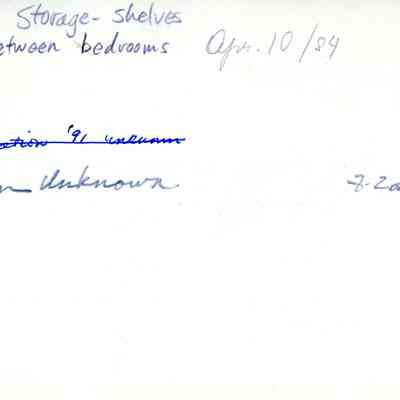 Storage- shelves
etween bedrooms Apr. 10/84
ation '91 unknown
n Unknown 7-20